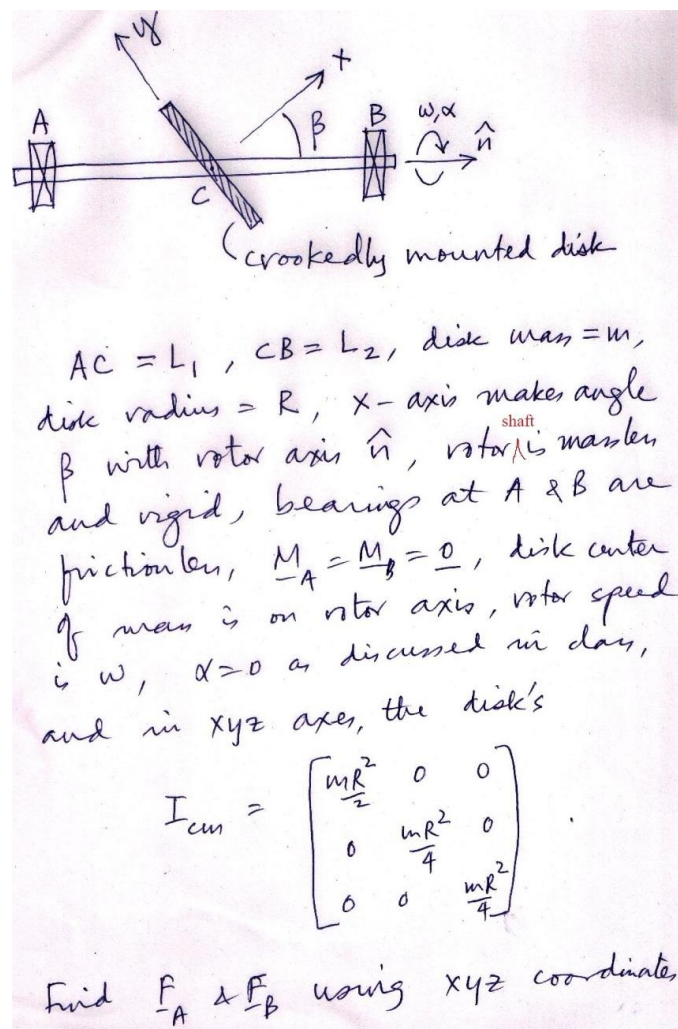 y
x
A
β
B
ω, α
n̂
C
crookedly mounted disk
AC = L₁, CB = L₂, disk mass = m,
disk radius = R, x-axis makes angle
β with rotor axis n̂, rotor shaft is massless
and rigid, bearings at A & B are
frictionless, M_A = M_B = 0, disk center
of mass is on rotor axis, rotor speed
is ω, α=0 as discussed in class,
and in xyz axes, the disk's
I_cm = [mR²/2 0 0
0 mR²/4 0
0 0 mR²/4].
Find F_A & F_B using xyz coordinates